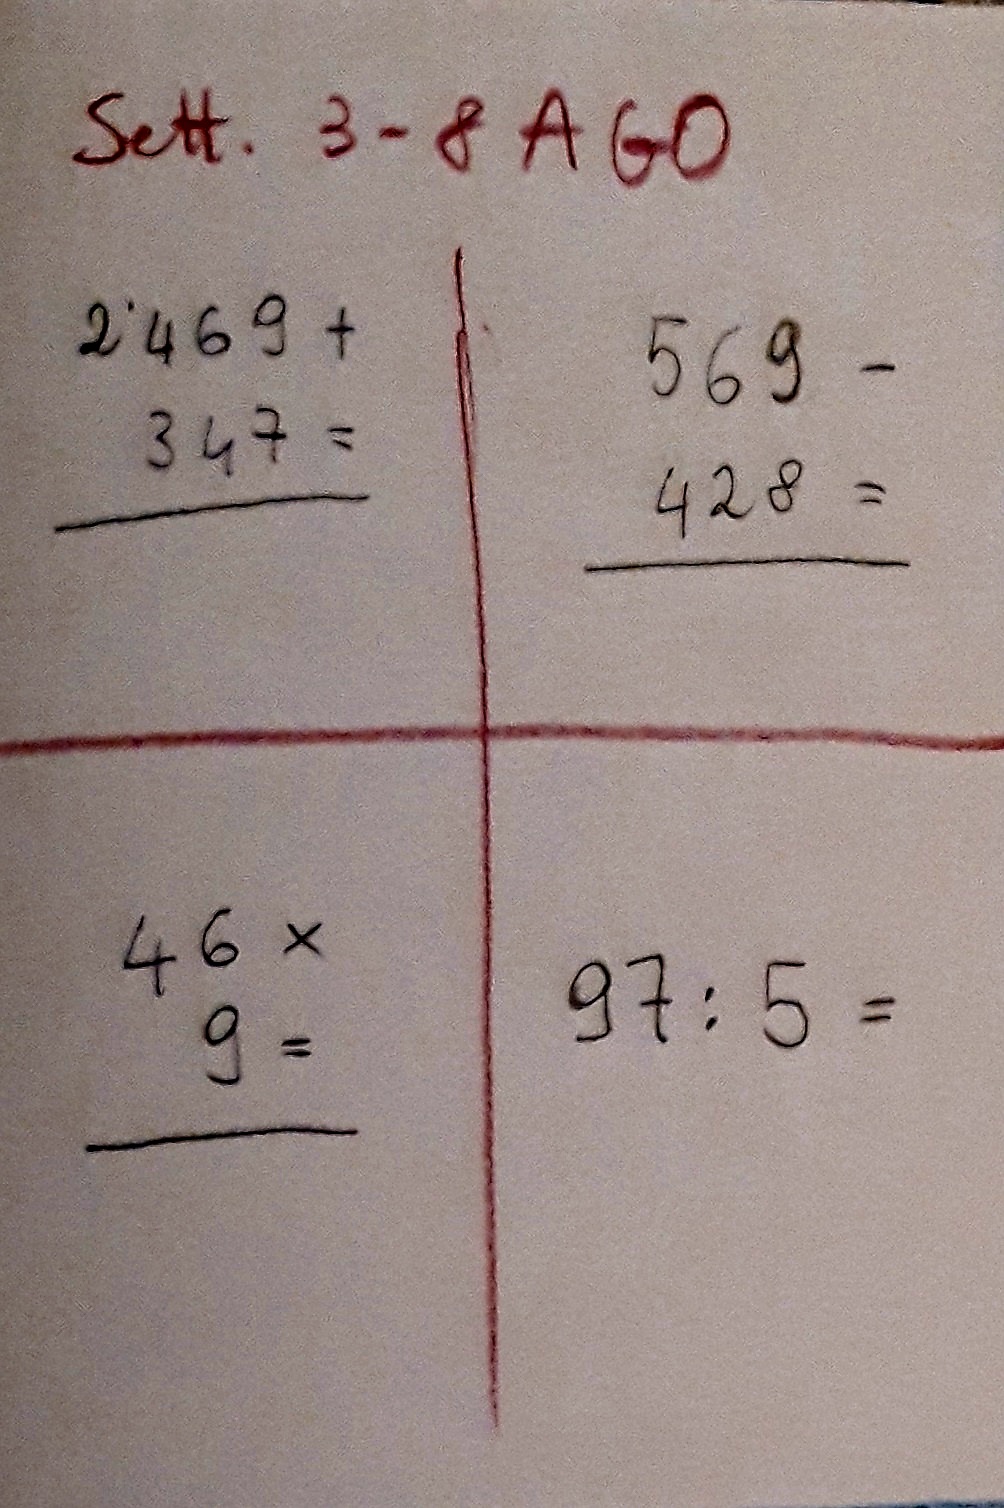 Sett. 3-8 AGO
2˙469 +
347 =
569 -
428 =
46 ×
9 =
97 : 5 =